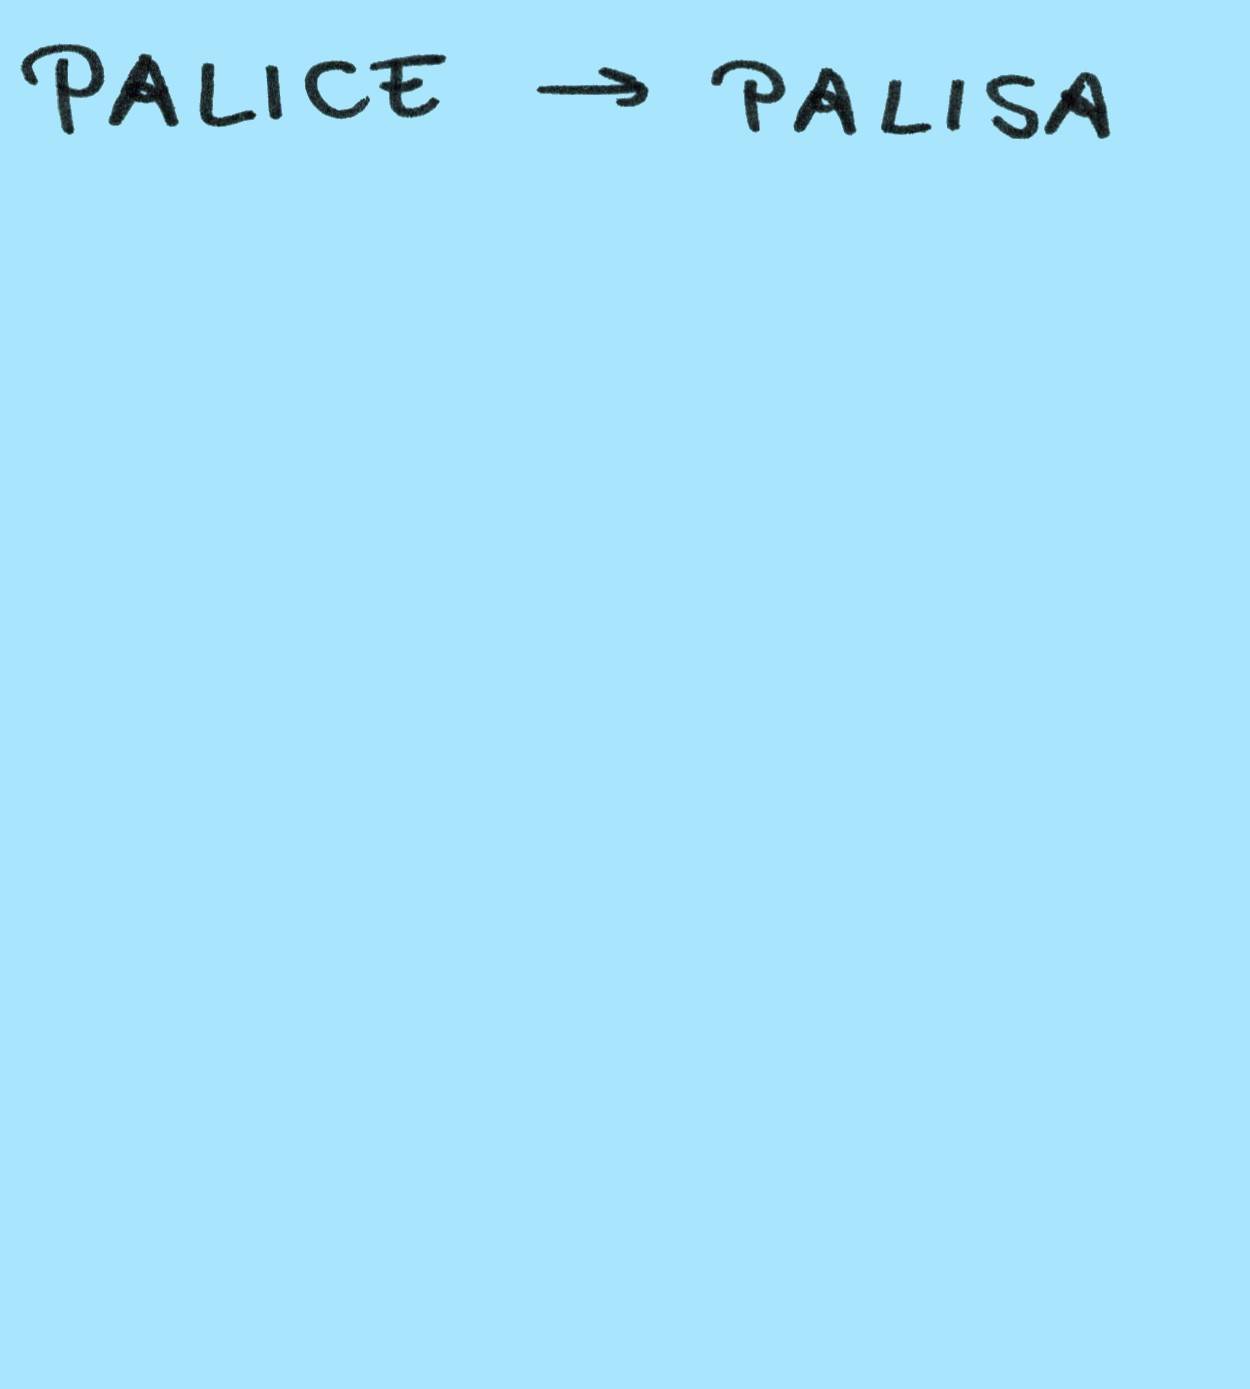 PALICE → PALISA